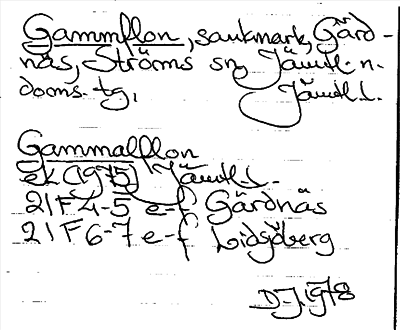 Gammflon, sankmark, Gärd-
näs, Ströms sn, Jämtl. n.
doms. tg, Jämtl. l.
Gammalflon
ek (1975) Jämtl l.
21F 4-5 e-f Gärdnäs
21F 6-7 e-f Lidsjöberg
D-J 1978